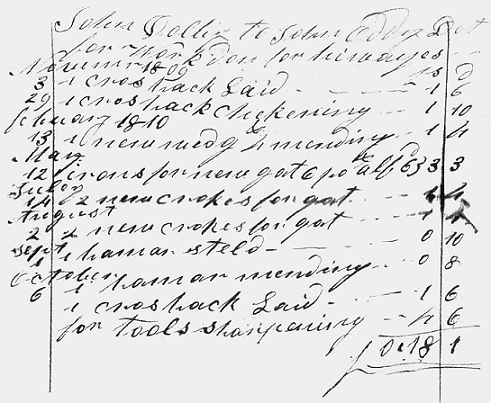 John Dollin to John Eddy Det
for work don for himayes
November 1809 s D
3 1 cros back Laid - - 1 6
29 1 cros back chekening - 1 10
february 1810
13 1 new wedg & mending - - 1 4
May
12 irons for new gat 3 3
July
14 2 new crokes for gat
August
2 2 new crokes for gat
Sept 1 hamar steld - - 0 10
October 1 hamar mending - - 0 8
6 1 cros back Laid - 1 6
for tools sharpening - - 4 6
0 18 1